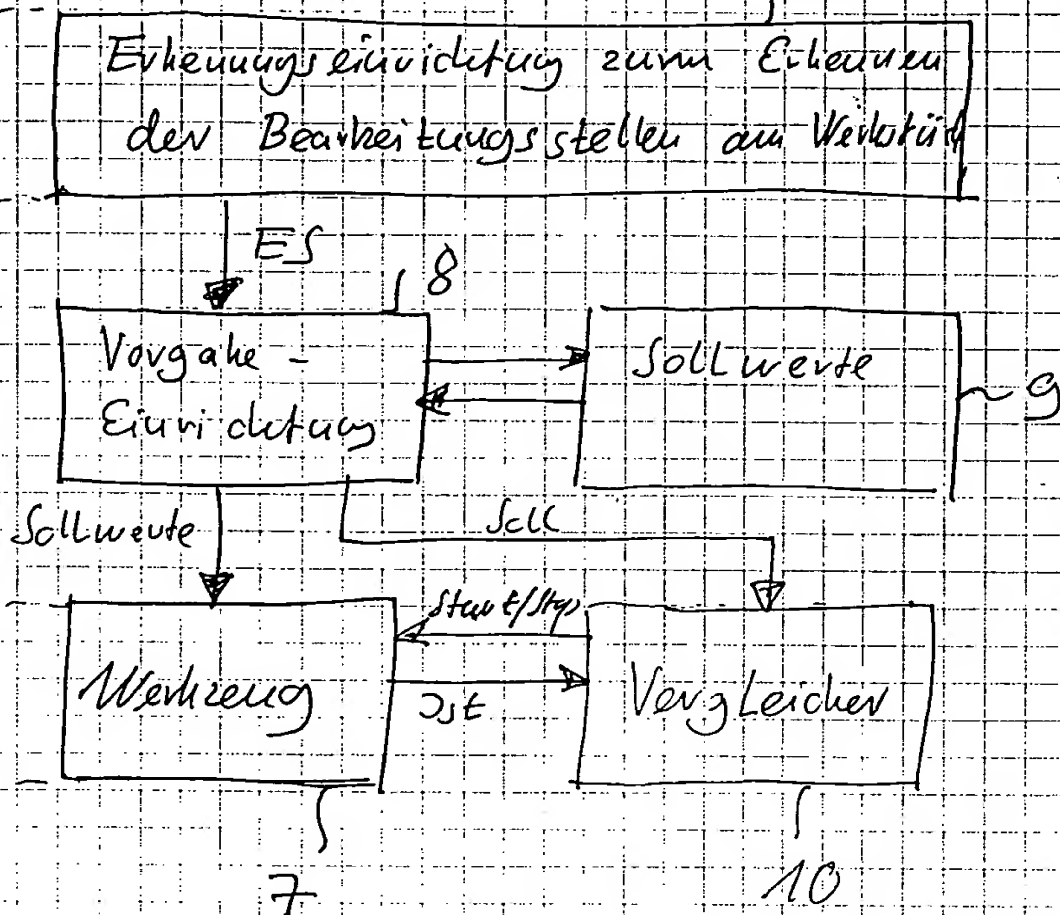 Erkennungseinrichtung zum Erkennen
der Bearbeitungsstellen am Werkstück
ES
8
Vorgabe-
Einrichtung
Sollwerte
9
Sollwerte
Soll
Start/Stop
Werkzeug
Ist
Vergleicher
7
10